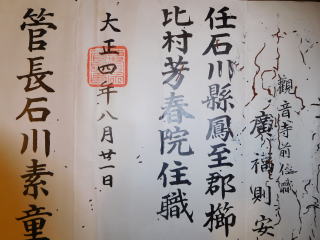 觀音寺前住職
廣福則安
任石川縣鳳至郡櫛
比村芳春院住職
大正四年八月廿一日
管長石川素童